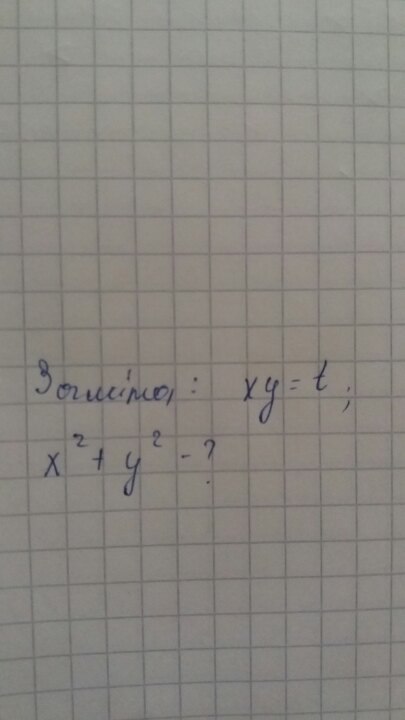 Заміна: xy = t;
x² + y² - ?